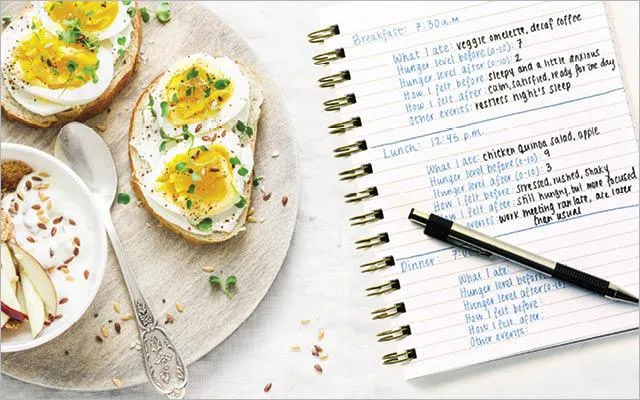 Breakfast: 7:30 a.m
What I ate: veggie omelette, decaf coffee
Hunger level before (0-10): 7
Hunger level after (0-10): 2
How I felt before: sleepy and a little anxious
How I felt after: calm, satisfied, ready for the day
Other events: restless night's sleep
Lunch: 12:45 p.m.
What I ate: chicken quinoa salad, apple
Hunger level before (0-10): 9
Hunger level after (0-10): 3
How I felt before: stressed, rushed, shaky
How I felt after: still hungry, but more focused
events: work meeting ran late, ate later
than usual
Dinner: 7:
What I ate:
Hunger level before (0-10):
Hunger level after (0-10):
How I felt before:
How I felt after:
Other events: